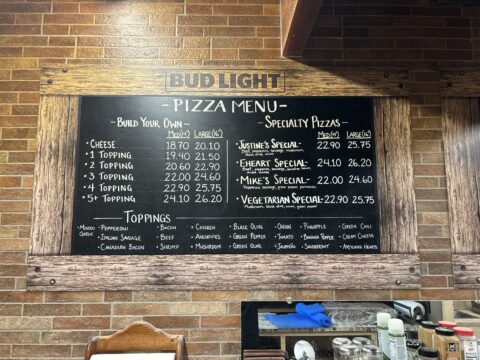 BUD LIGHT
-PIZZA MENU-
-BUILD YOUR OWN- MED(14") LARGE(16")
• CHEESE 18.70 20.10
• 1 TOPPING 19.40 21.50
• 2 TOPPING 20.60 22.90
• 3 TOPPING 22.00 24.60
• 4 TOPPING 22.90 25.75
• 5+ TOPPING 24.10 26.20
-SPECIALTY PIZZAS- MED(14") LARGE(16")
• JUSTINE'S SPECIAL- 22.90 25.75
• EHEART SPECIAL- 24.10 26.20
• MIKE'S SPECIAL- 22.00 24.60
• VEGETARIAN SPECIAL- 22.90 25.75
TOPPINGS
• MINCED GARLIC • PEPPERONI • BACON • CHICKEN • BLACK OLIVE • ONION • PINEAPPLE • GREEN CHILI
• ITALIAN SAUSAGE • BEEF • ANCHOVIES • GREEN PEPPER • TOMATO • BANANA PEPPER • CREAM CHEESE
• CANADIAN BACON • SHRIMP • MUSHROOM • GREEN OLIVE • JALAPEÑO • SAUERKRAUT • ARTICHOKE HEARTS